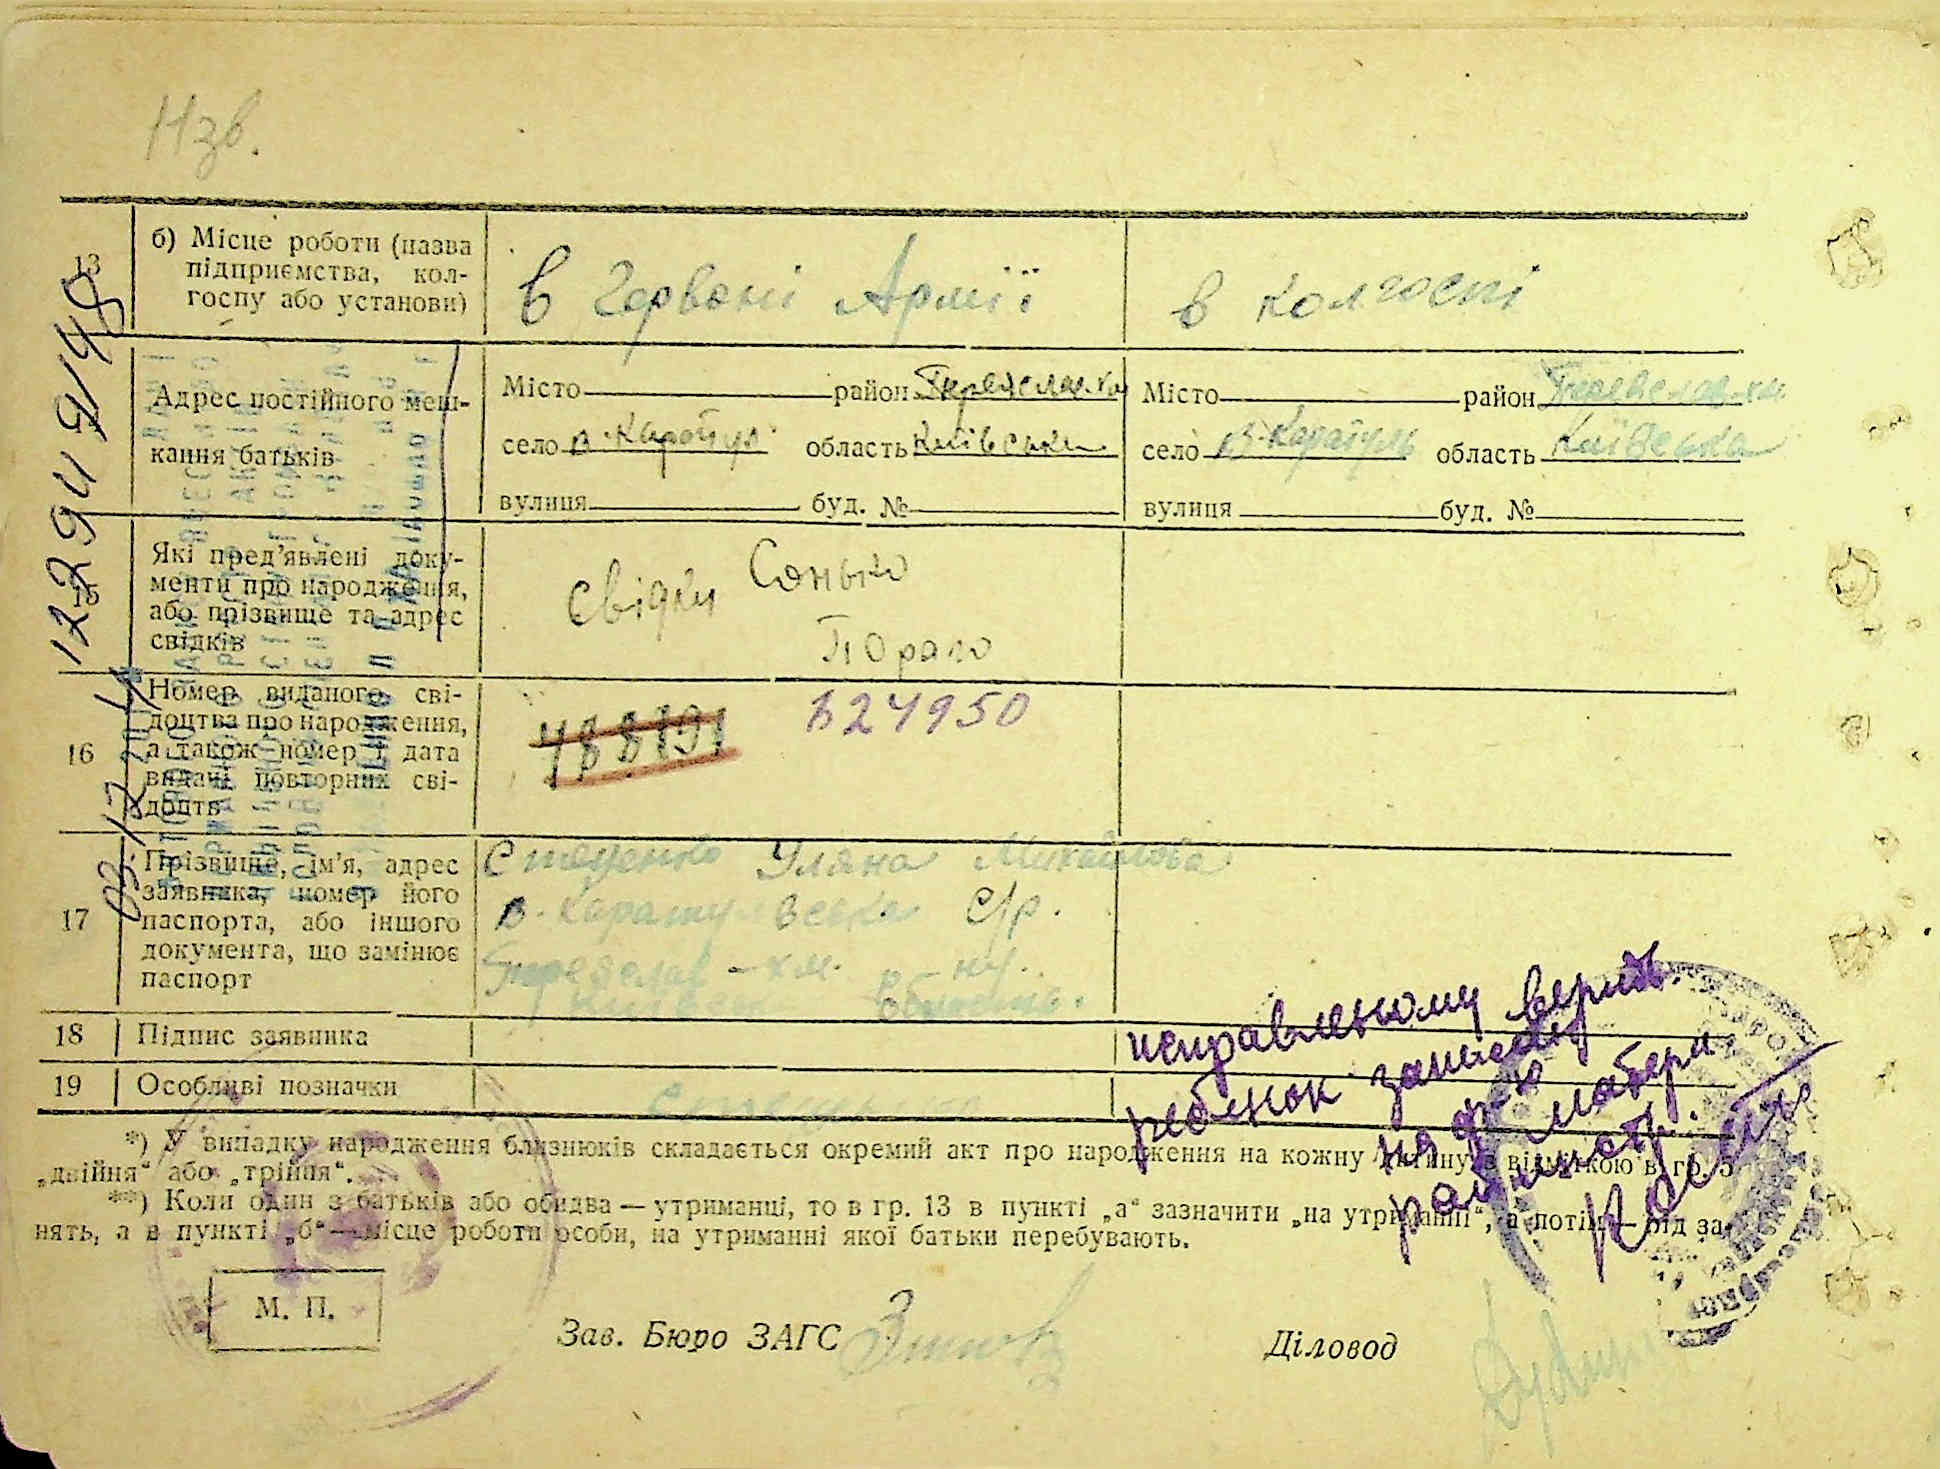 13
б) Місце роботи (назва
підприємства, кол-
госпу або установи)
в Червоні Армії
в колгоспі
Адрес постійного меш-
кання батьків
Місто район Переяслав-хм
село В-Каратул область Київська
вулиця буд. №
Місто район Переяслав-хм
село В-Каратуль область Київська
вулиця буд. №
Які пред’явлені доку-
менти про народження,
або прізвище та адрес
свідків
Свідки Сонько
16
Номер виданого сві-
доцтва про народження,
а також номер і дата
видачі повторних сві-
доцтв
488191
824950
17
Прізвище, ім’я, адрес
заявника, номер його
паспорта, або іншого
документа, що замінює
паспорт
Стеценко Уляна Михайлова
В-Каратульська с/р.
Переяслав-хм.
Київськ область.
18 Підпис заявника
19 Особливі позначки
исправленому верить.
ребенок записан
на ф-ю матери
*) У випадку народження близнюків складається окремий акт про народження на кожну дитину з відміткою в гр. 5
„двійня“ або „трійня“.
**) Коли один з батьків або обидва — утриманці, то в гр. 13 в пункті „а“ зазначити „на утриманні“, а потім — рід за-
нять, а в пункті „б“ — місце роботи особи, на утриманні якої батьки перебувають.
М. П.
Зав. Бюро ЗАГС
Діловод